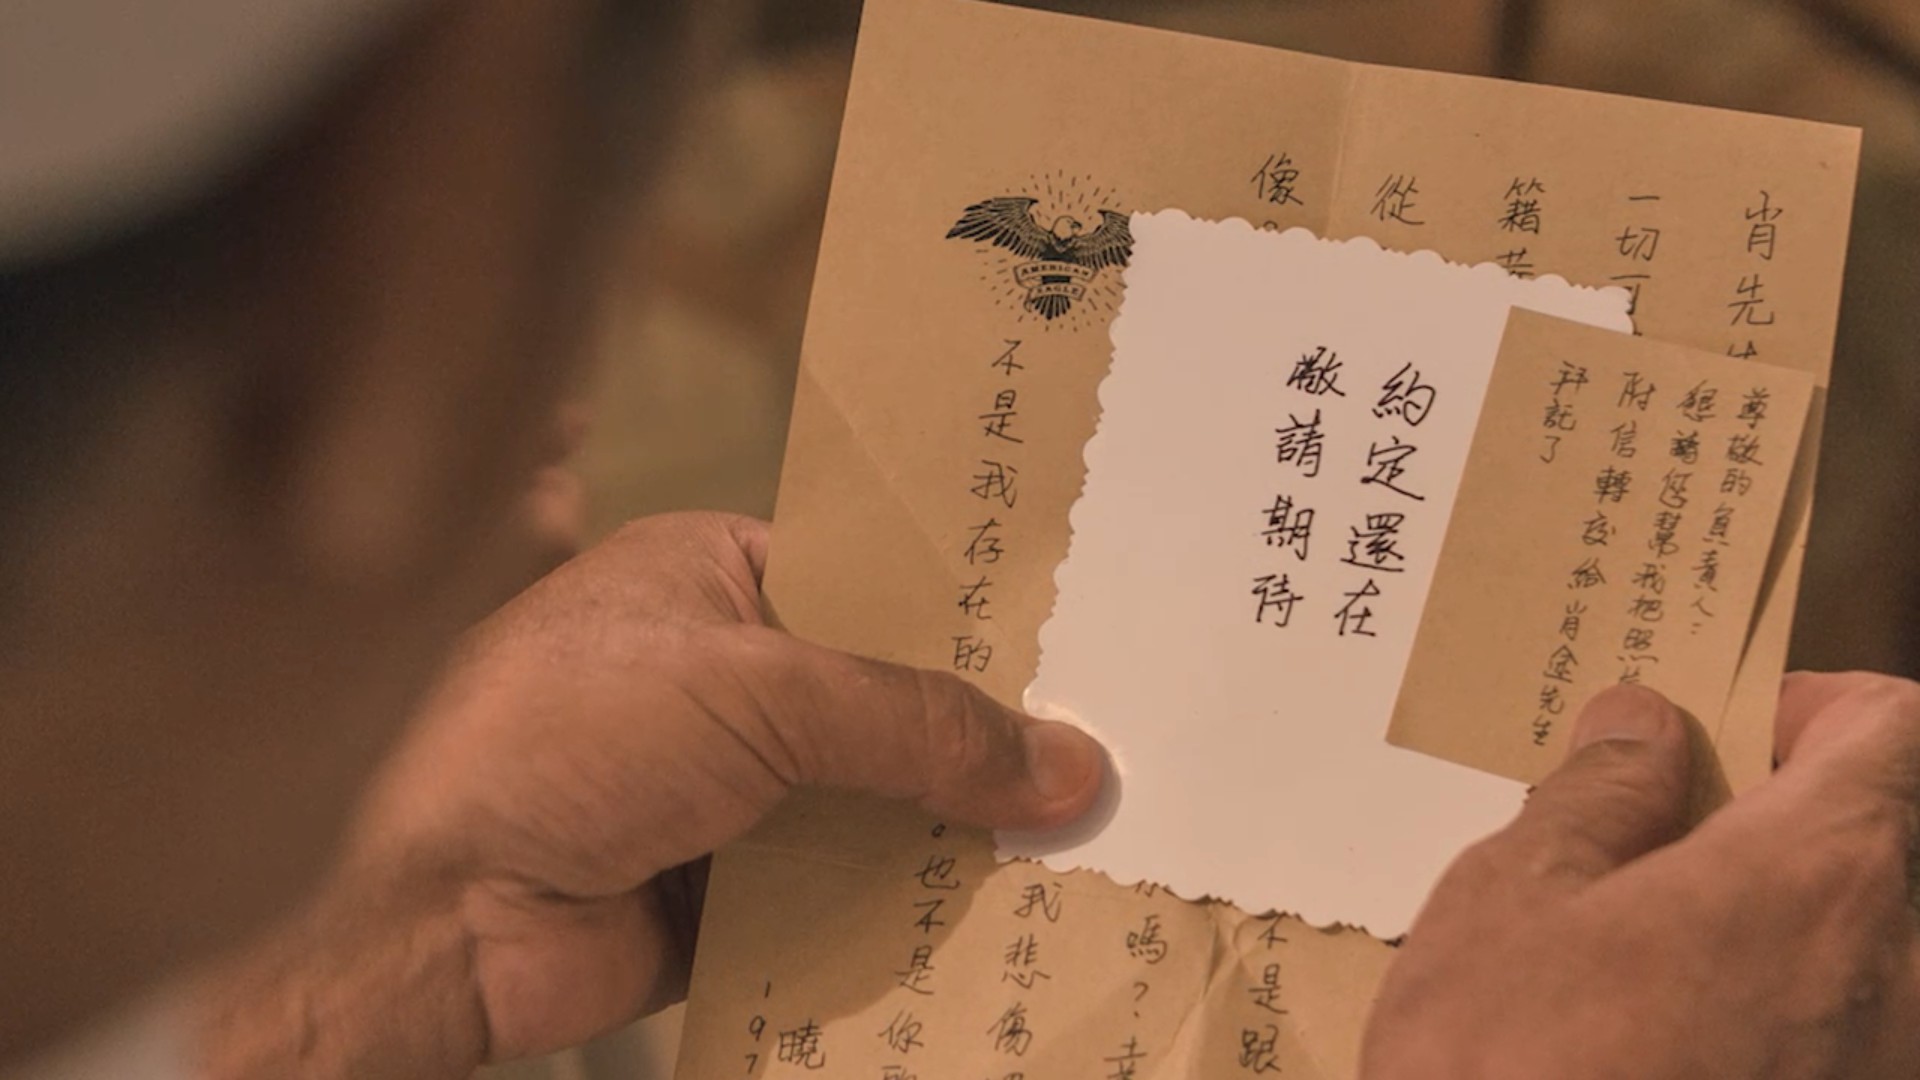 肖先生
一切可
籍共
從
像
不是跟
嗎？幸
我悲傷
不是我存在的
。也不是你的
曉
197
AMERICAN
EAGLE
約定還在
敬請期待
尊敬的負責人：
懇請您幫我把照片
附信轉交給肖塗先生
拜託了